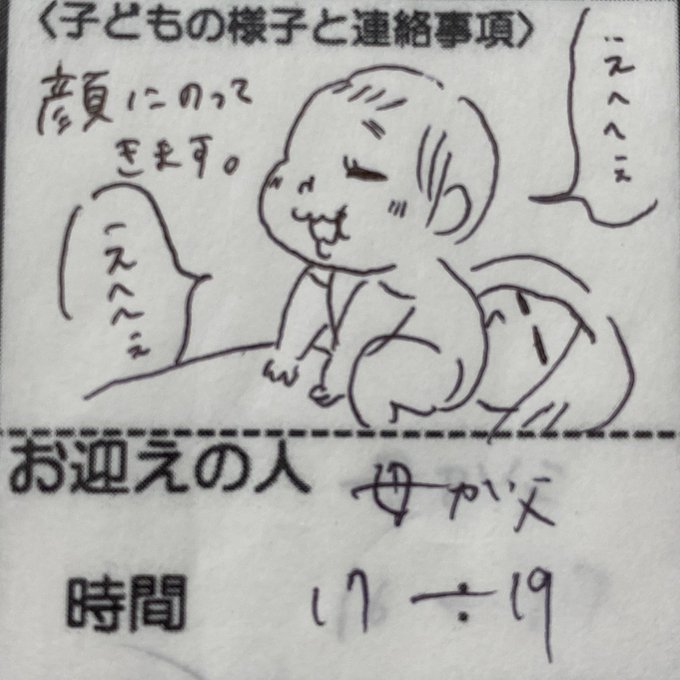 〈子どもの様子と連絡事項〉
顔にのって
きます。
えへへぇ
えへへぇ
お迎えの人 母か父
時間 17÷19